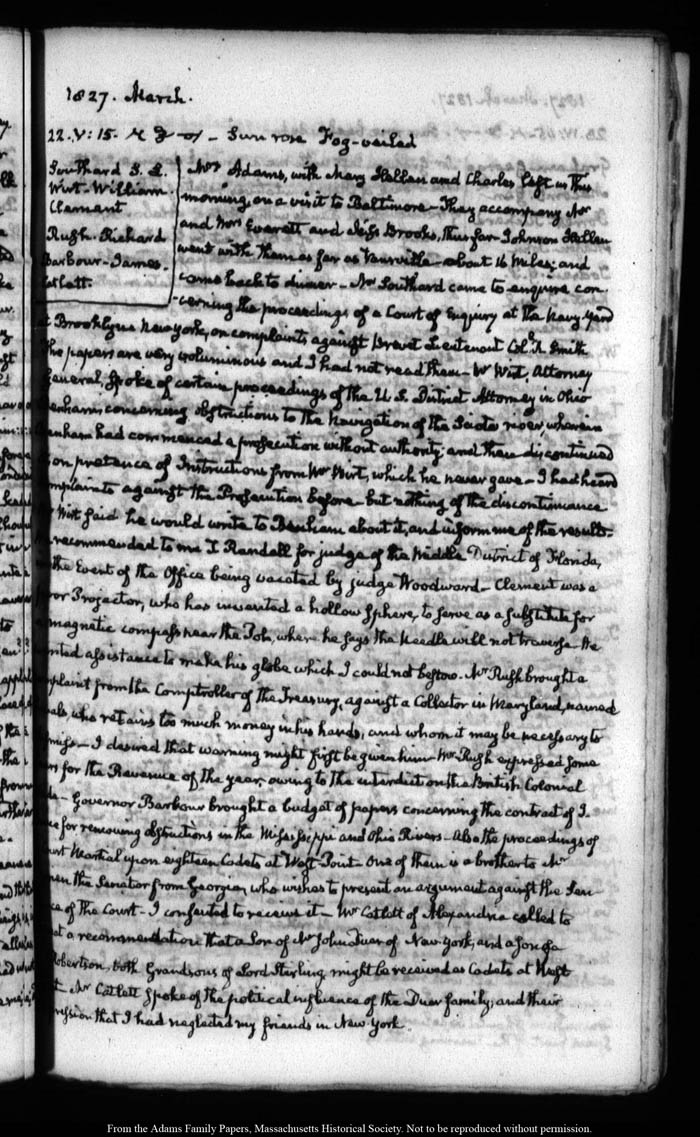 1827. March.
22. V: 15. Sun rose Fog-veiled
Southard S. L.
Wirt. William.
Clement
Rush. Richard
Barbour-James.
Catlett.
Mrs Adams, with Mary Hellen and Charles left us this
morning, on a visit to Baltimore— They accompany Mr
and Mrs Everett and Miss Brooks, thus far— Johnson Hellen
went with them as far as Vansville— about 16 Miles; and
came back to dinner— Mr Southard came to enquire con-
cerning the proceedings of a Court of Enquiry at the Navy Yard
Brooklyne New York, on complaints against Brevet Lieutenant Col. R. Smith
The papers are very voluminous and I had not read them— Mr Wirt, Attorney
General, spoke of certain proceedings of the U. S. District Attorney in Ohio
concerning obstructions to the Navigation of the Sciota river, wherein
had commenced a prosecution without authority; and then discontinued
on pretence of Instructions from Mr Wirt, which he never gave— I had heard
complaints against the Prosecution before— but nothing of the discontinuance
Wirt said he would write to Benham about it, and inform me of the result.
recommended to me T Randall for judge of the Middle District of Florida,
the Event of the Office being vacated by judge Woodward— Clement was a
or Projector, who has invented a hollow sphere, to serve as a substitute for
magnetic compass near the Pole, where he says the Needle will not traverse. He
wanted assistance to make his globe which I could not bestow. Mr Rush brought a
complaint from the Comptroller of the Treasury, against a Collector in Maryland, named
who retains too much money in his hands, and whom it may be necessary to
I desired that warning might first be given him— Mr Rush expressed some
for the Revenue of the year, owing to the interdict on the British Colonial
Governor Barbour brought a budget of papers concerning the contract of
for removing obstructions in the Mississippi and Ohio Rivers— Also the proceedings of
Court Martial upon eighteen Cadets at West Point— One of them is a brother to Mr
the Senator from Georgia, who wishes to present an argument against the Sen-
of the Court— I consented to receive it— Mr Catlett of Alexandria called to
a recommendation that a Son of Mr John Duer of New York, and a son of a
Robertson, both Grandsons of Lord Stirling might be received as Cadets at West
Mr Catlett spoke of the political influence of the Duer family; and their
that I had neglected my friends in New York.
From the Adams Family Papers, Massachusetts Historical Society. Not to be reproduced without permission.